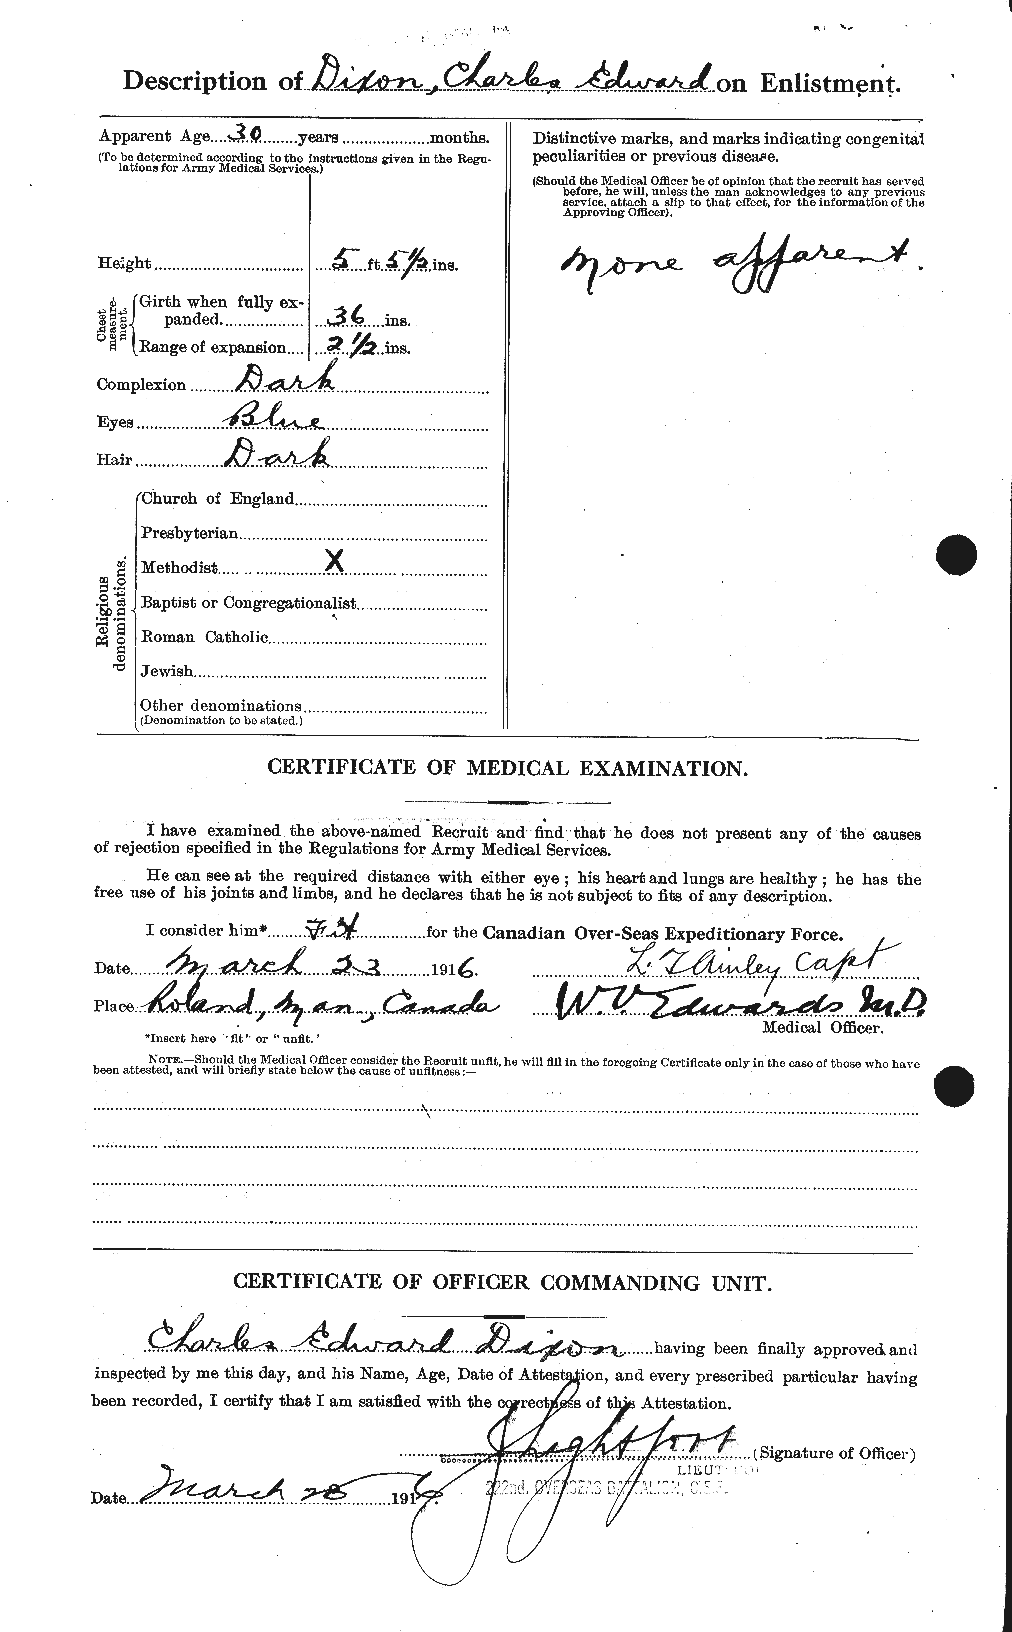 Description of Dixon, Charles Edward on Enlistment.
Apparent Age....30........years....................months.
(To be determined according to the instructions given in the Regu-
lations for Army Medical Services.)
Height.................................. 5 ft. 5 1/2 ins.
Chest measure-ment.
Girth when fully ex-
panded.................. 36 ins.
Range of expansion.... 2 1/2 ins.
Complexion ........ Dark
Eyes................ Blue
Hair................ Dark
Religious denominations.
Church of England
Presbyterian
Methodist X
Baptist or Congregationalist
Roman Catholic
Jewish
Other denominations
(Denomination to be stated.)
Distinctive marks, and marks indicating congenital
peculiarities or previous disease.
(Should the Medical Officer be of opinion that the recruit has served
before, he will, unless the man acknowledges to any previous
service, attach a slip to that effect, for the information of the
Approving Officer).
None apparent.
CERTIFICATE OF MEDICAL EXAMINATION.
I have examined the above-named Recruit and find that he does not present any of the causes
of rejection specified in the Regulations for Army Medical Services.
He can see at the required distance with either eye ; his heart and lungs are healthy ; he has the
free use of his joints and limbs, and he declares that he is not subject to fits of any description.
I consider him*........Fit..............for the Canadian Over-Seas Expeditionary Force.
Date March 23 1916. Capt
Place Roland, Man, Canada W.V. Edwards M.D.
Medical Officer.
*Insert here "fit" or "unfit."
NOTE.—Should the Medical Officer consider the Recruit unfit, he will fill in the foregoing Certificate only in the case of those who have
been attested, and will briefly state below the cause of unfitness :—
CERTIFICATE OF OFFICER COMMANDING UNIT.
Charles Edward Dixon having been finally approved and
inspected by me this day, and his Name, Age, Date of Attestation, and every prescribed particular having
been recorded, I certify that I am satisfied with the correctness of this Attestation.
Lightfoot (Signature of Officer)
LIEUT
Date March 28 1916. 222nd. OVERSEAS BATTALION, C.E.F.